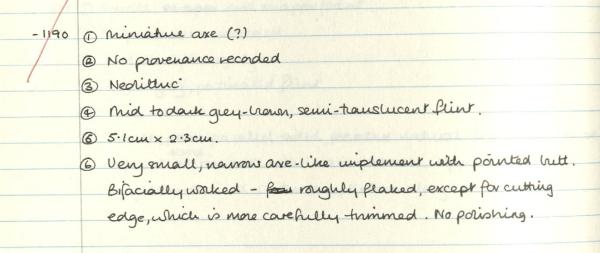 -1190 ① Miniature axe (?)
② No provenance recorded
③ Neolithic
④ Mid to dark grey-brown, semi-translucent flint.
⑤ 5.1cm x 2.3cm.
⑥ Very small, narrow axe-like implement with pointed butt.
Bifacially worked - roughly flaked, except for cutting
edge, which is more carefully trimmed. No polishing.